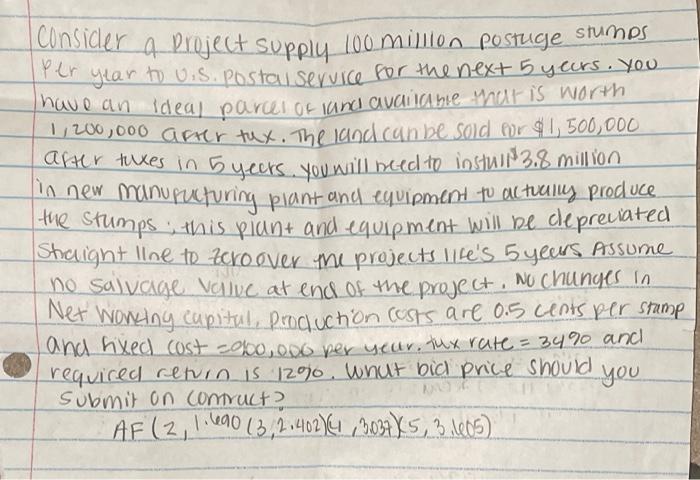 Consider a project supply 100 million postage stamps
per year to U.S. postal service for the next 5 years. You
have an ideal parcel of land available that is worth
1,200,000 after tax. The land can be sold for $1,500,000
after taxes in 5 years. you will need to install $3.8 million
in new manufacturing plant and equipment to actually produce
the stamps; this plant and equipment will be depreciated
Straight line to zero over the projects life's 5 years Assume
no salvage value at end of the project. No changes in
Net working capital, production costs are 0.5 cents per stamp
and fixed cost = 900,000 per year. tax rate = 34% and
required return is 12%. What bid price should you
Submit on contract?
AF (2, 1.690 (3, 2.402)(4, 3.037)(5, 3.605)